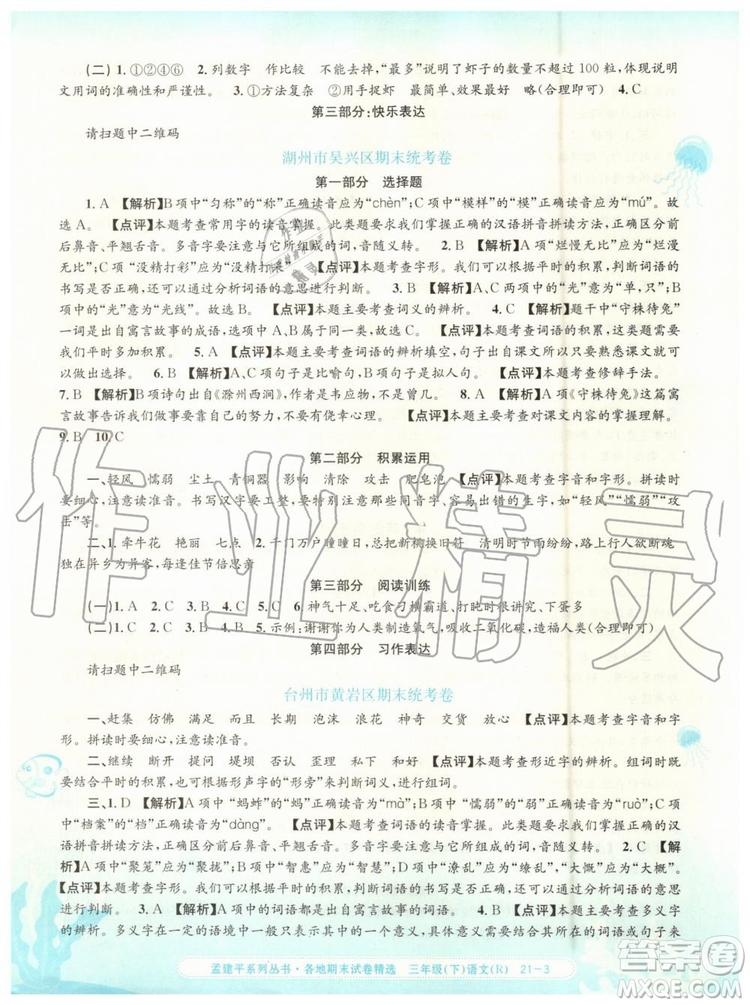 (二)1.①②④⑥ 2.列数字 作比较 不能去掉,“最多”说明了虾子的数量不超过100粒,体现说明
文用词的准确性和严谨性。 3.①方法复杂 ②用手捉虾 最简单、效果最好 略(合理即可) 4.C
第三部分:快乐表达
请扫题中二维码
湖州市吴兴区期末统考卷
第一部分 选择题
1.A 【解析】B项中“匀称”的“称”正确读音应为“chèn”;C项中“模样”的“模”正确读音应为“mú”。故
选A。 【点评】本题考查常用字的读音掌握。此类题要求我们掌握正确的汉语拼音拼读方法,正确区分前
后鼻音、平翘舌音。多音字的读音要注意与它所在的具体语境相对应,随义定音,随音义转。 2.B 【解析】A项“烂慢无比”应为“烂漫
无比”;C项“没精打彩”应为“没精打采”。
的书写是否正确,要结合词语的意思进行判断。 3.B 【解析】A、C两项中“只”的意思为“单,只”;B
项中“光”的意思为“光线”。故选B。 【点评】本题主要考查词义的辨析。 4.C 【解析】题干中“守株待兔”
一词是出自寓言故事的成语,选项中C项也是出自寓言故事。 【点评】本题考查词语的积累与掌握,要求
我们平时多加积累。 5.A 【点评】本题主要考查词语的辨析填空,句子出自课文,可以只要熟悉课文就可以
做出选择。 6.A 【解析】B、C两个句子是比喻句,A项句子不是比喻句。 【点评】本题主要考查修辞手法。
7.B 【解析】B项诗句出自《滁州西涧》,作者是韦应物,不是王维。 8.A 【解析】《守株待兔》这篇寓
言故事告诉我们不要不劳而获,不能抱有侥幸心理。 【点评】本题主要考查对课文内容的掌握理解。
9.B 10.C
第二部分 积累运用
一、轻风 懦弱 尘土 青铜器 影响 清除 攻击 肥皂泡 【点评】本题考查字音和字形。拼读时
要细心,注意读准音。书写汉字要工整,要特别注意那些容易写错的字形,如“轻风”“懦弱”“攻
击”等。
二、1.牵牛花 艳丽 七点 2.千门万户曈曈日,总把新桃换旧符 清明时节雨纷纷,路上行人欲断魂
独在异乡为异客,每逢佳节倍思亲
第三部分 阅读训练
(一)1.A 2.C 3.B 4.B 5.C 6.神气十足、吃食刁横霸道、叫时很讲究、下蛋多
(二)1.C 2.A 3.B 4.B 5.示例:谢谢你为人类制造氧气,吸收二氧化碳,造福人类(合理即可)
第四部分 习作表达
请扫题中二维码
台州市黄岩区期末统考卷
一、赶集 仿佛 满足 而且 长期 泡沫 浪花 神奇 交货 放心 【点评】本题考查字音和字
形。拼读时要细心,注意读准音。
二、继续 断开 提问 堤坝 否认 歪头 副业 幅度 【点评】本题主要考查形近字的辨析。组词时
要结合平时的积累,根据形声字的“形旁”来判断词义,进行组词。
三、1.D 【解析】A项中“蚂蚱”的“蚂”正确读音为“mà”;B项中“懦弱”的“弱”正确读音为“ruò”;C
项中“档案”的“档”正确读音为“dàng”。 【点评】本题考查词语的读音掌握。此类题要求我们掌握正
确的汉语拼音拼读方法,正确区分前后鼻音、平翘舌音。多音字的读音要注意与它所在的具体语境相对应,随义定音,随音义转。 2.C 【解析】A
项中“聚笼”应为“聚拢”;B项中“智惠”应为“智慧”;D项中“潦乱”应为“缭乱”,“大慨”应为“大概”。
【点评】本题主要考查学生对字形的掌握。分析词语的书写是否正确,要结合词语的意思
进行判断。 3.A 【解析】A项中的词语都是表示有寓言故事的词语。 4.B 【点评】本题主要考查多义字的
辨析。多义字在一定的语境中只有一个固定的意义,解答时要结合具体的语言环境来分析判断。
孟建平系列丛书·各地期末试卷精选 三年级(下)语文(R) 21-3
作业精灵